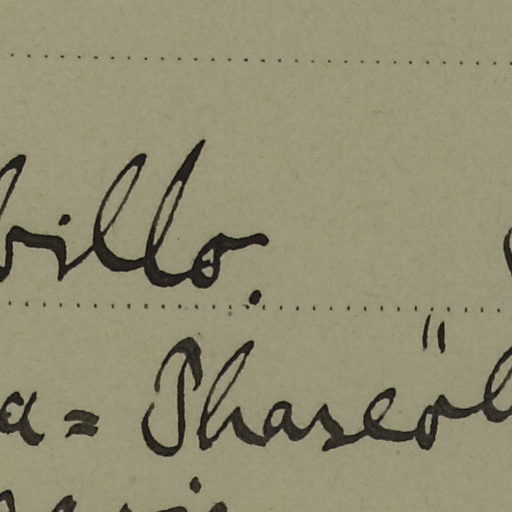 billo.
a = Phaseöl